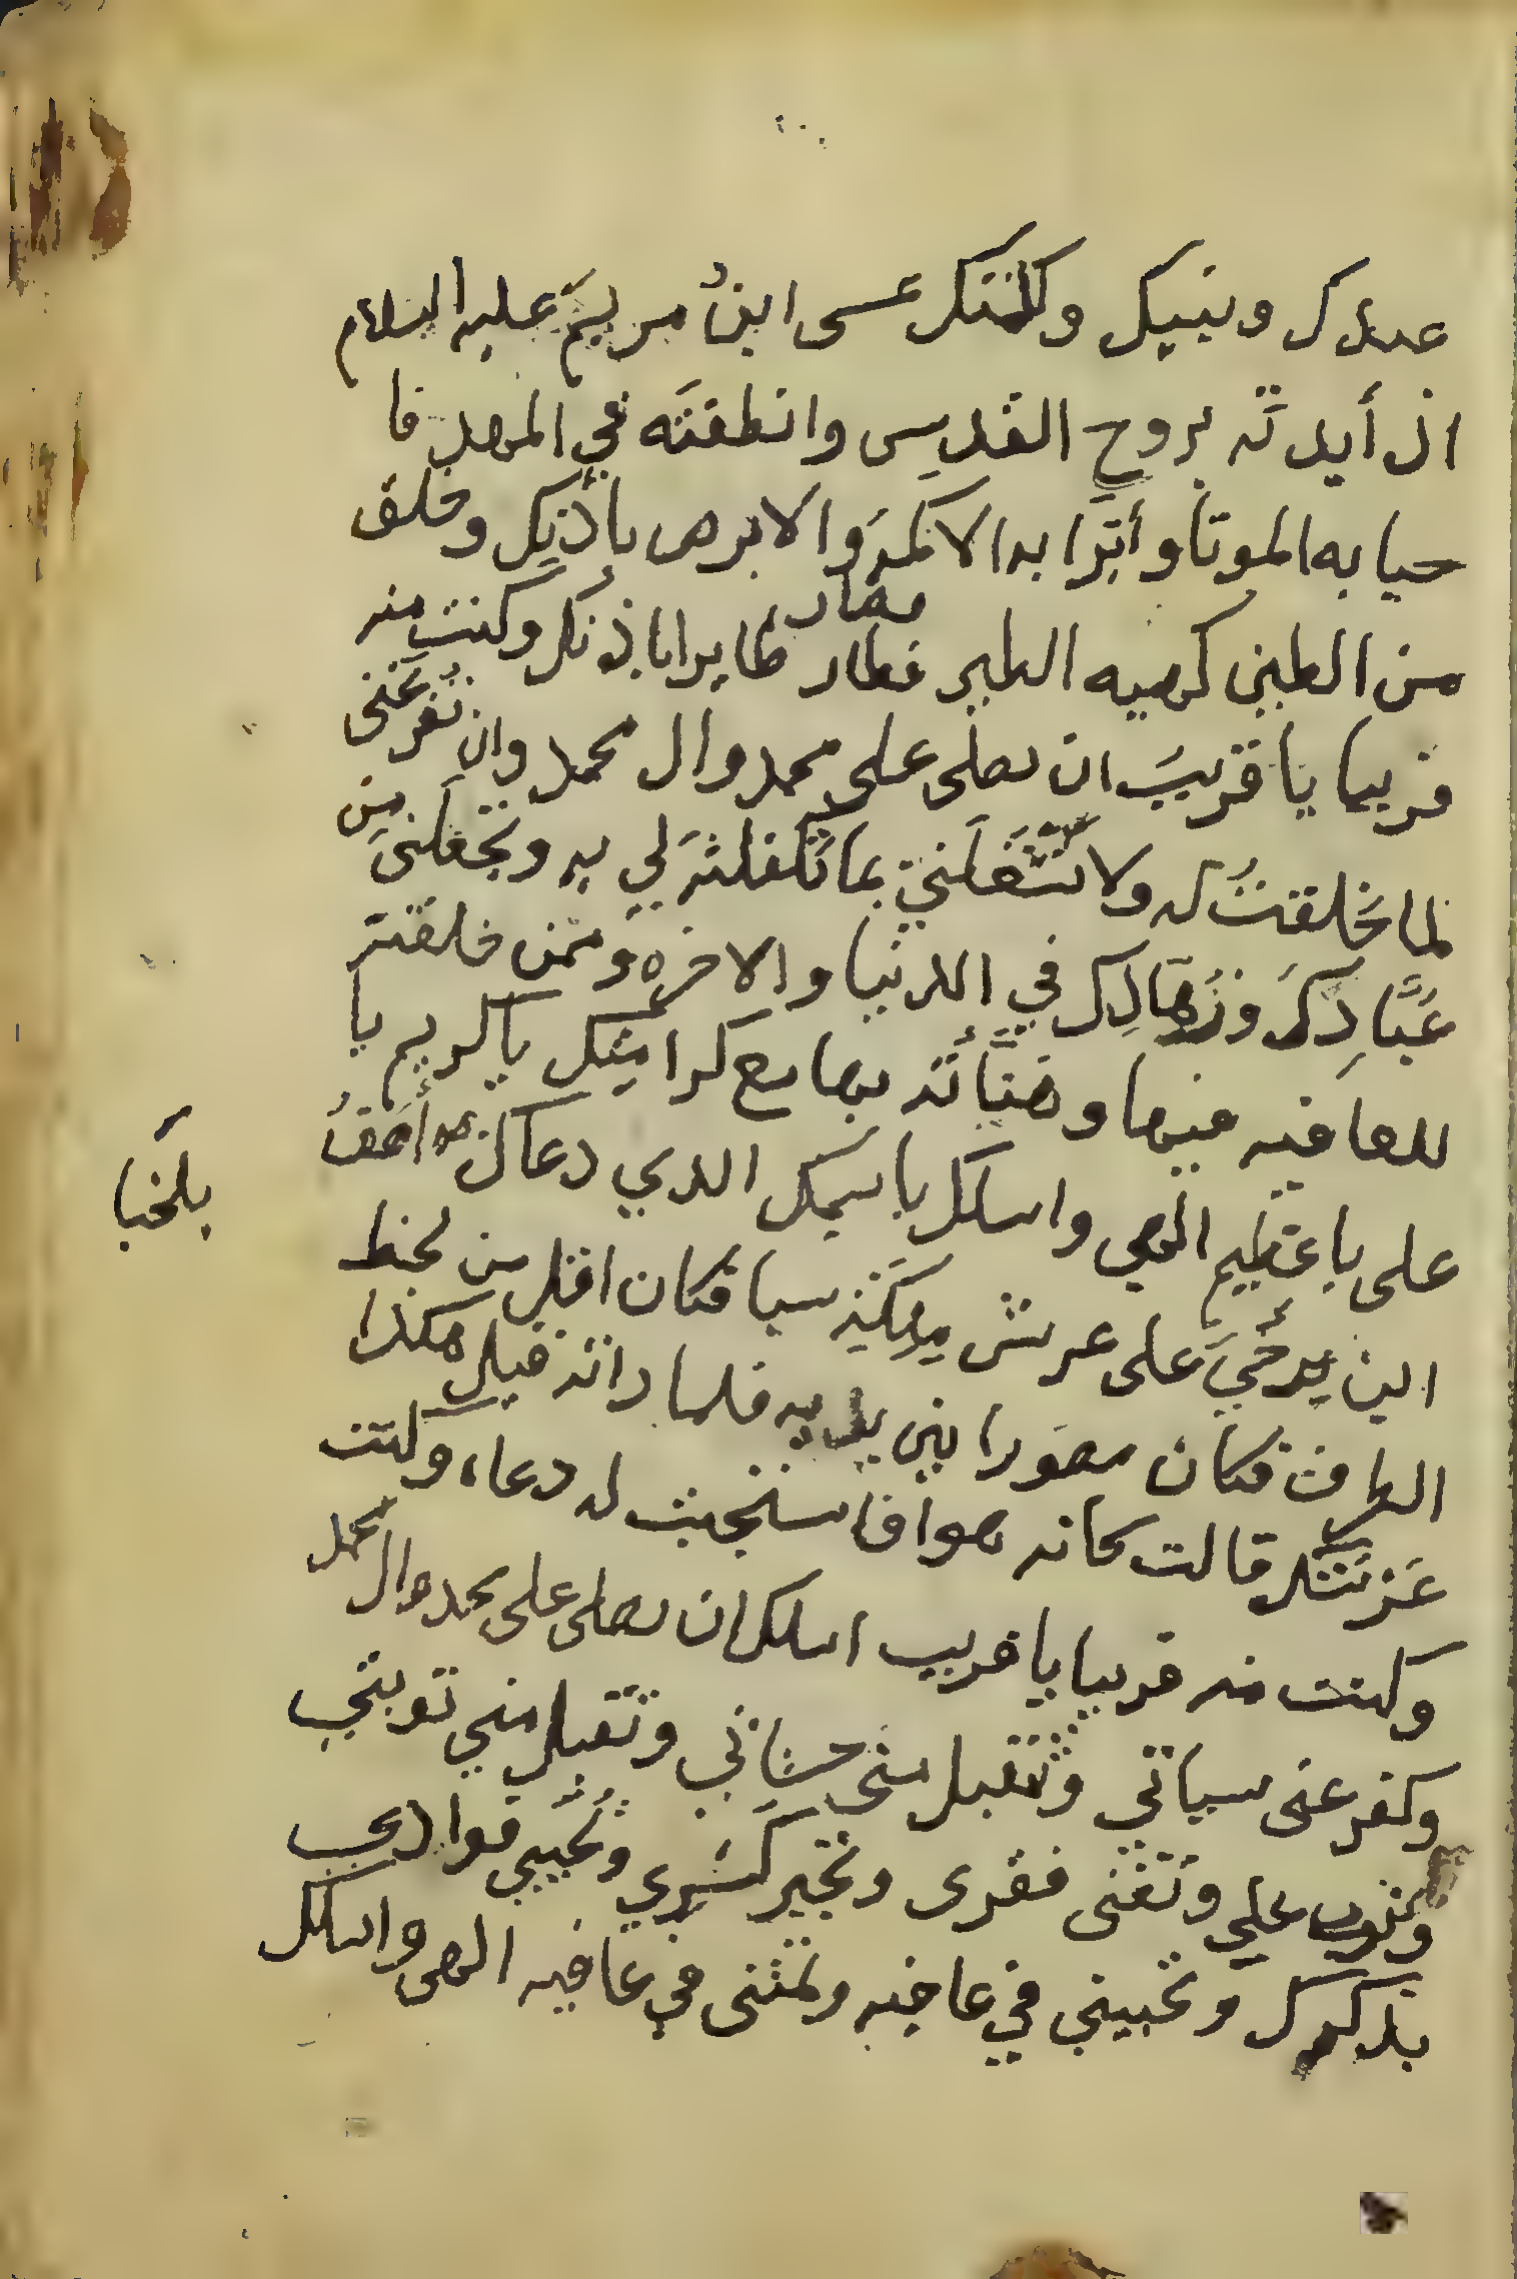 عبدك ونبيك وكلمتك عسى ابنُ مريمَ عليه السلام
اذ أيدته بروح القدسِ وانطقتَه في المهد فا
حيا به الموتا وأبرَا به الاكمهَ والابرص بأذنِك وخلق
من الطين كهيه الطير فطار طايرا باذنك وكنت منه
فصار
قريبا يا قريبَ ان تصلى على محمد وال محمد وان تُفرغَنى
لما خَلقتنُ له ولا تَشْغَلَنيْ بما تَكفلتَه لي به وتجعَلنى مِن
عُبَّادِكَ وزُهَّادِكَ في الدنيا والاخره وممن خلقته
للعافيه فيها وهَنَّأته بها مع كرامتِك يا كريم يا
على يا عظيم الهي واسلك باسمك الدي دعاك به أصَفُ
ابن برخَيَا على عرش مِلِكَةِ سبا فكان اقل من لحظ
الطرف فكان مصَورا بين يديه فلما راته قيل هكذا
عَرشك قالت كانه هوا فاستجبت له دعاء وكنت
وكنت منه قريبا يا قريب اسلك ان تصلى على محمد وال محمد
وكفر عنى سياتي وتَتقبل منى حسناتي وتَقبل مني توبتي
وتتوب علي وتغنى فقرى وتجبر كَسْري وتُحْيي فوادي
بذكرك وتحييني في عافيه وتمتنى في عافيه الهى واسلك